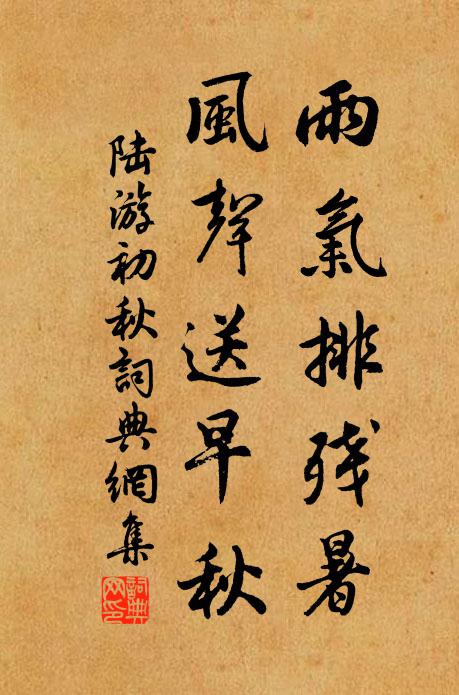 雨氣排残暑
風聲送早秋
陆游初秋詞典網集
詞典网印